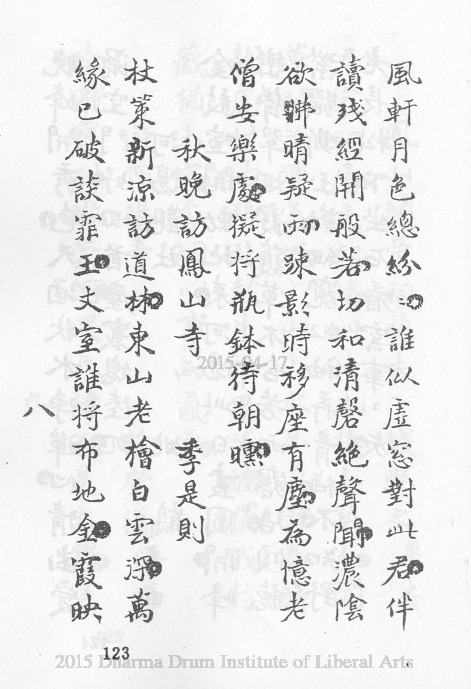 風軒月色總紛〻誰似虛窓對此君伴
讀殘經開般若切和清磬絕聲聞濃陰
欲聨晴疑雨踈影時移座有塵為憶老
僧安樂處擬將瓶鉢待朝曛
秋晚訪鳳山寺 季是則
杖策新涼訪道林東山老檜白雲深萬
緣已破談霏玉丈室誰將布地金霞映
八
123
2015-04-17
2015 Dharma Drum Institute of Liberal Arts